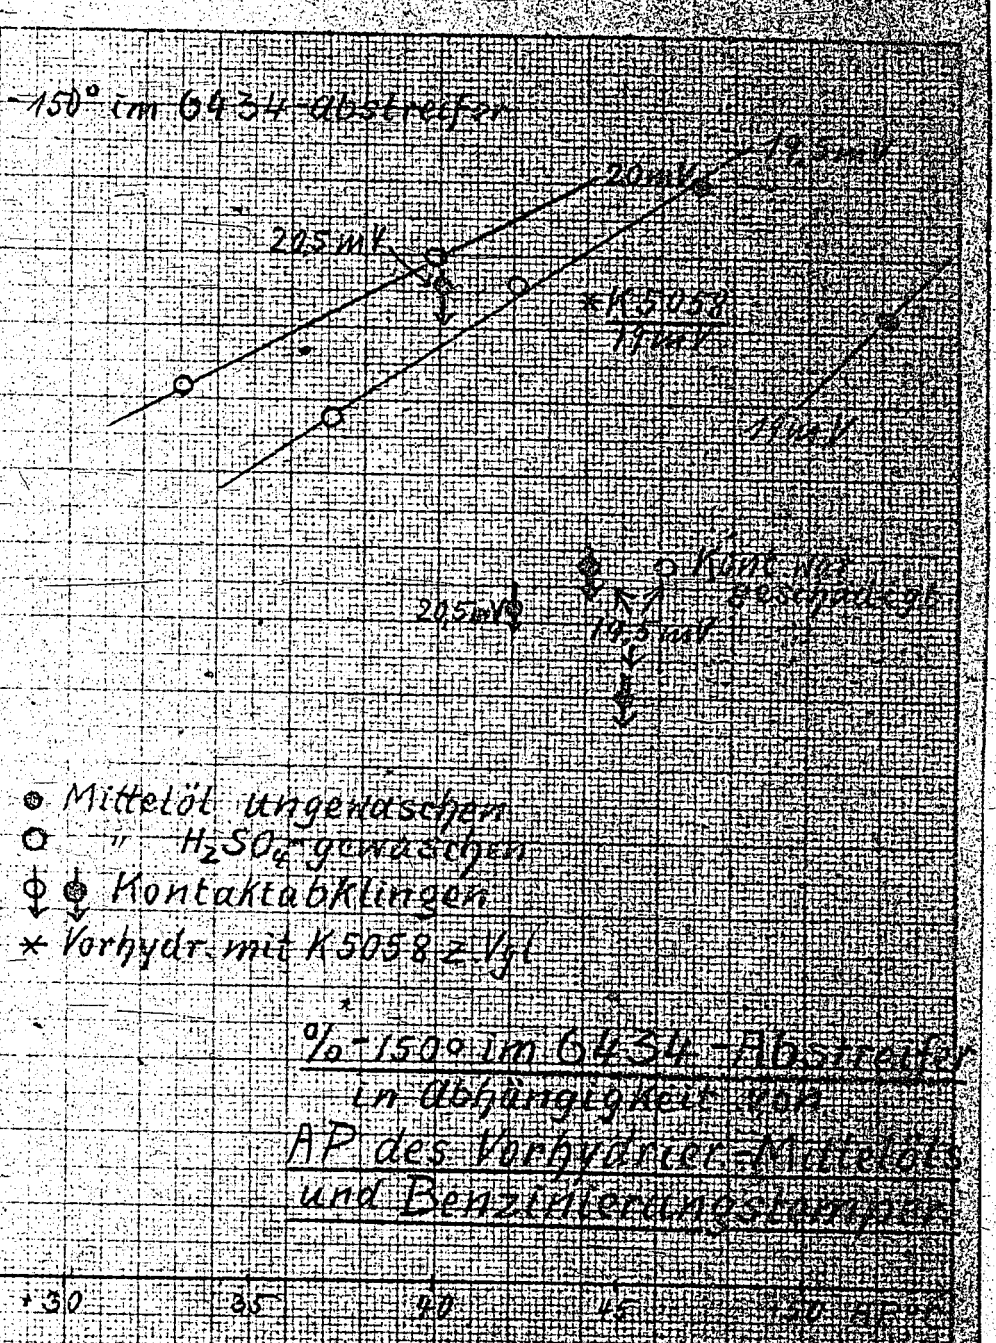 -150° im 6434-Abstreifer
19,5 mV
20 mV
20,5 mV
* K 5058
19 mV
19 mV
Kont war
geschädigt
20,5 mV
19,5 mV
Mittelöl ungewaschen
" H₂SO₄-gewaschen
Kontaktabklingen
* Vorhydr. mit K 5058 z. Vgl
%-150° im 6434-Abstreifer
in Abhängigkeit von
AP des Vorhydrier-Mittelöls
und Benzinierungstemper.
+30 35 40 45 +50 AP °C